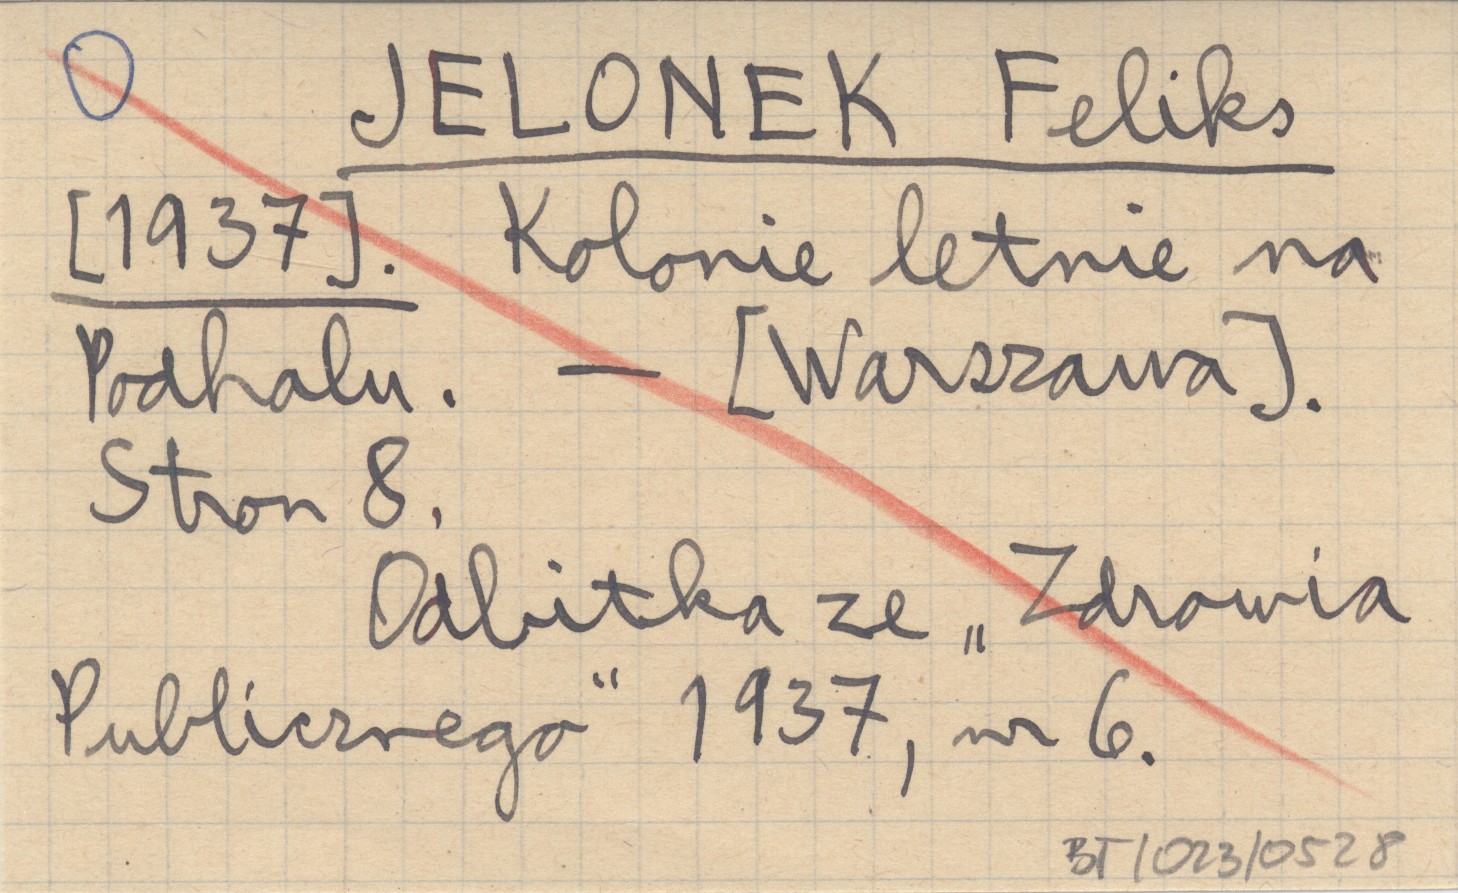 JELONEK Feliks
[1937]. Kolonie letnie na
Podhalu. — [Warszawa].
Stron 8.
Odbitka ze „Zdrowia
Publicznego“ 1937, nr 6.
BT/023/0528